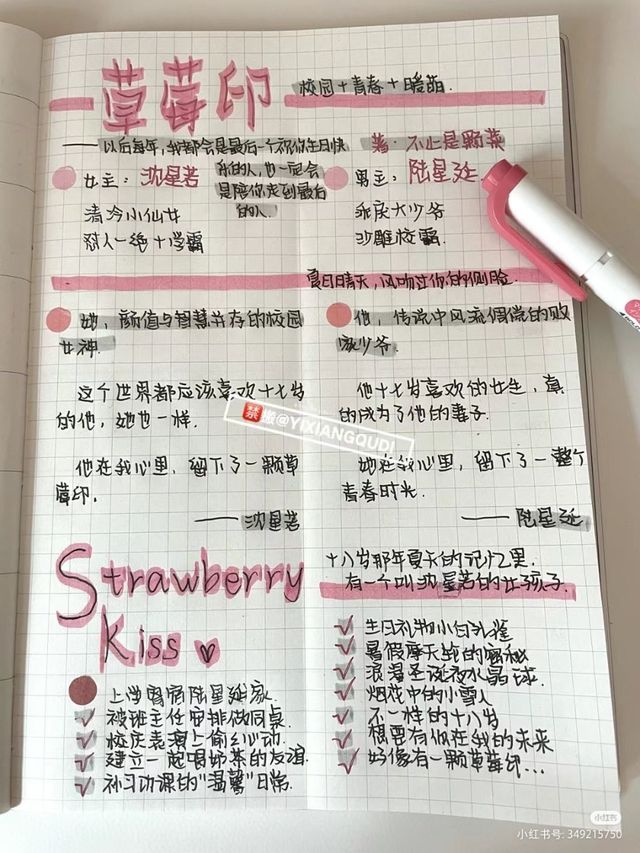 草莓印
校园+青春+暖萌.
——以后每年,我都会是最后一个祝你生日快
乐的人,也一定会
是陪你走到最后
的人.
著:不止是颗菜
女主:沈星若
清冷小仙女
怼人一绝+学霸
男主:陆星延
乖戾大少爷
沙雕校霸.
夏日晴天,风吻过你的侧脸.
她,颜值与智慧并存的校园
女神.
这个世界都应该喜欢十七岁
的他,她也一样.
他在我心里,留下了一颗草
莓印.
——沈星若
他,传说中风流倜傥的败
家少爷.
他十七岁喜欢的女生,真
的成为了他的妻子.
她在我心里,留下了一整个
青春时光.
——陆星延
禁 搬@YIXIANGQUDI
Strawberry
Kiss
十八岁那年夏天的记忆里.
有一个叫沈星若的女孩子.
上学寄宿陆星延家.
被班主任安排做同桌.
校庆表演上偷幺心动.
建立一起喝奶茶的友谊.
补习功课的"温馨"日常.
生日礼物小白孔雀
暑假摩天轮的告白
浪漫圣诞夜水晶球.
烟花中的小雪人
不一样的十八岁
想要有你在我的未来
好像有一颗草莓印...
小红书
小红书号: 349215750